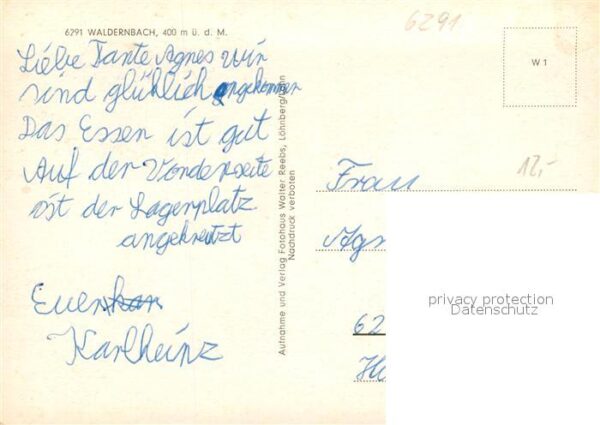 6291 WALDERNBACH, 400 m ü. d. M.
6291
Liebe Tante Agnes wir
sind glühlich angekommen
Das Essen ist gut
Auf der Vorderseite
ist der Lagerplatz
angekreutzt
Euer
Karlheinz
Aufnahme und Verlag Fotohaus Walter Reebs, Löhnberg/Lahn
Nachdruck verboten
W 1
12,-
Frau
Agn
62
privacy protection
Datenschutz